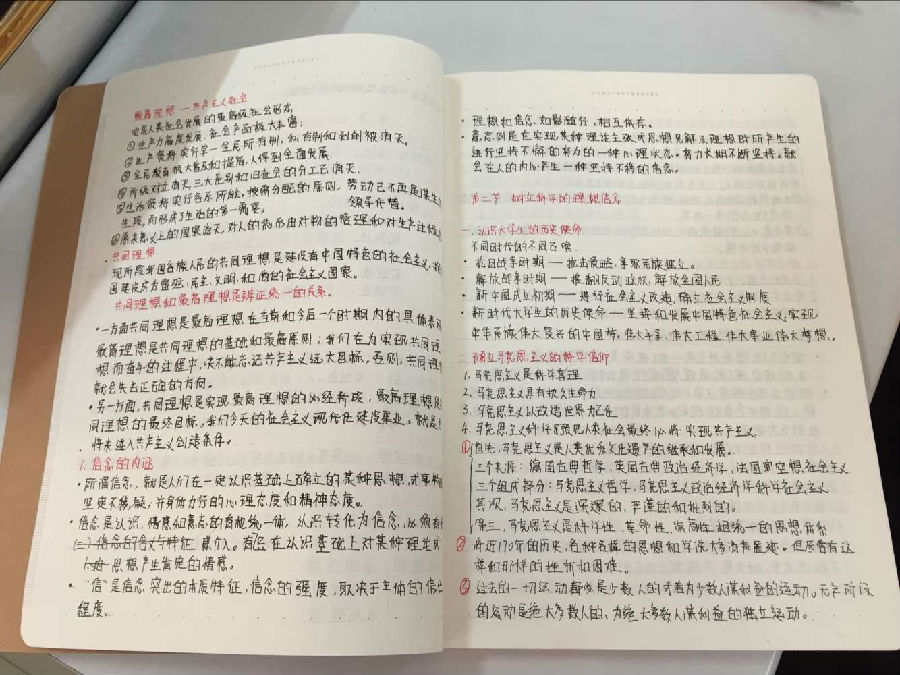 最高理想——共产主义社会
它是人类社会发展的最高级社会形态
①生产力高度发展,社会产品极大丰富;
②生产资料实行单一全民所有制,私有制和剥削被消灭。
③全民教育极大普及和提高,人得到全面发展
④阶级对立消灭,三大差别和旧社会的分工已消灭
⑤生活资料实行各尽所能,按需分配的原则,劳动已不再是谋生
手段,而形成了生活的第一需要; 领导作替。
⑥原来意义上的国家消失,对人的统治由对物的管理和对生产过程
·共同理想
现阶段我国各族人民的共同理想是建设有中国特色的社会主义,
国建设成为富强,民主,文明,和谐的社会主义国家。
共同理想和最高理想是辨证统一的关系。
·一方面共同理想是最高理想在当前和今后一个时期内的具体
最高理想是共同理想的基础和最高原则;我们在为实现共同理
想而奋斗的过程中,决不能忘记共产主义远大目标,否则,共同理
就会失去正确的方向。
·另一方面,共同理想是实现最高理想的必经阶段,最高理想是
同理想的最终目标,我们今天的社会主义现代化建设事业,就是
将来进入共产主义创造条件。
1. 信念的内涵
·所谓信念,就是人们在一定认识基础上确立的某种思想,或事物
坚定不移疑,并身体力行的心理态度和精神态度。
·信念是认识,情感和意志的有机统一体,认识转化为信念,必须有
(三)信念的含义与特征 介入。有 在认识基础上对某种理论
思想产生肯定的情感。
·“信”是信念突出的本质特征,信念的强度,取决于主体的信
程度。
·理想和信念,如影随行,相互依存。
·意志则是在实现某种理论主张或思想见解及理想时所产生的
进行坚持不懈的努力的一种心理状态。努力长期不断坚持。就
会在人的内心产生一种坚持不移的信念。
第二节 树立科学的理想信念
一.认识大学生的历史使命
不同时代的不同召唤
·抗日战争时期——抗击侵略,争取民族独立。
·解放战争时期——推翻反动政权,解放全国人民
·新中国成立初期——进行社会主义改造,确立社会主义制度
·新时代大学生的历史使命——坚持和发展中国特色社会主义,实现
中华民族伟大复兴的中国梦。伟大斗争,伟大工程,伟大事业,伟大梦想。
二.确立马克思主义的科学信仰
1. 马克思主义是科学真理
2. 马克思主义具有持久生命力
3. 马克思主义以改造世界为己任
4. 马克思主义科学预见人类社会最终必将实现共产主义
①首先,马克思主义是人类优秀文化遗产的继承和发展。
三个来源:德国古典哲学,英国古典政治经济学,法国空想社会主义
三个组成部分:马克思主义哲学,马克思主义政治经济学,科学社会主义
其次,马克思主义是深深的,严谨的和批判的。
第三,马克思主义是科学性,革命性,崇高性相统一的思想体系
②将近170年的历史,各种各样的思想和学派大多消声匿迹。但尽管有这
样和那样的挫折和困难。
③过去的一切运动都是少数人的或者为少数人谋利益的运动。无产阶级
的运动是绝大多数人的,为绝大多数人谋利益的独立运动。